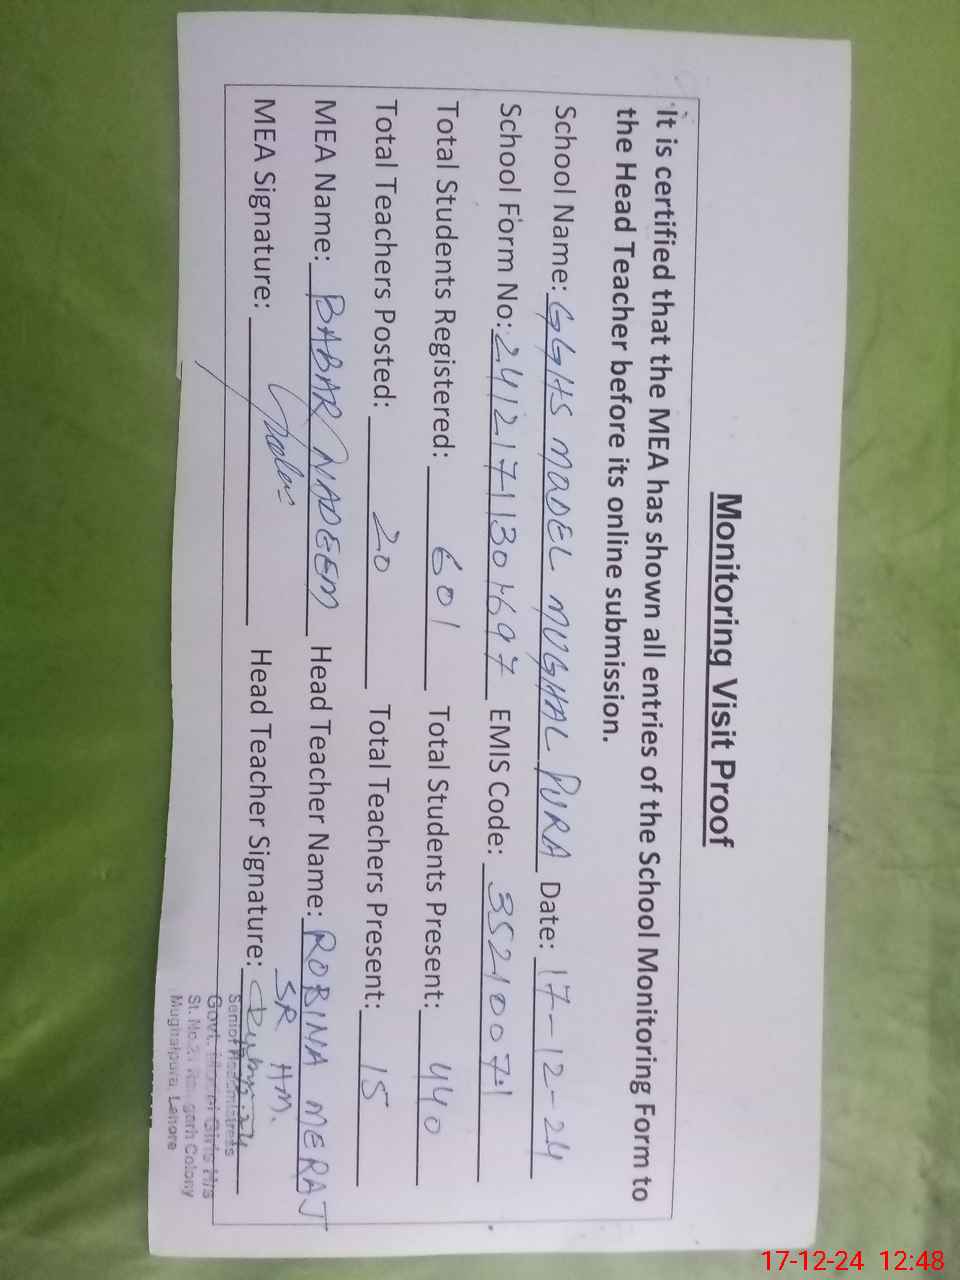 Monitoring Visit Proof
It is certified that the MEA has shown all entries of the School Monitoring Form to
the Head Teacher before its online submission.
School Name: GGHS MODEL MUGHAL PURA Date: 17-12-24
School Form No: EMIS Code: 35210071
Total Students Registered: 601 Total Students Present: 440
Total Teachers Posted: 20 Total Teachers Present: 15
MEA Name: BABAR NADEEM Head Teacher Name: ROBINA MERAJ
SR HM.
MEA Signature: Head Teacher Signature:
Senior Headmistress
Govt. Girls H/S
St. No. garh Colony
Mughalpura, Lahore
17-12-24 12:48